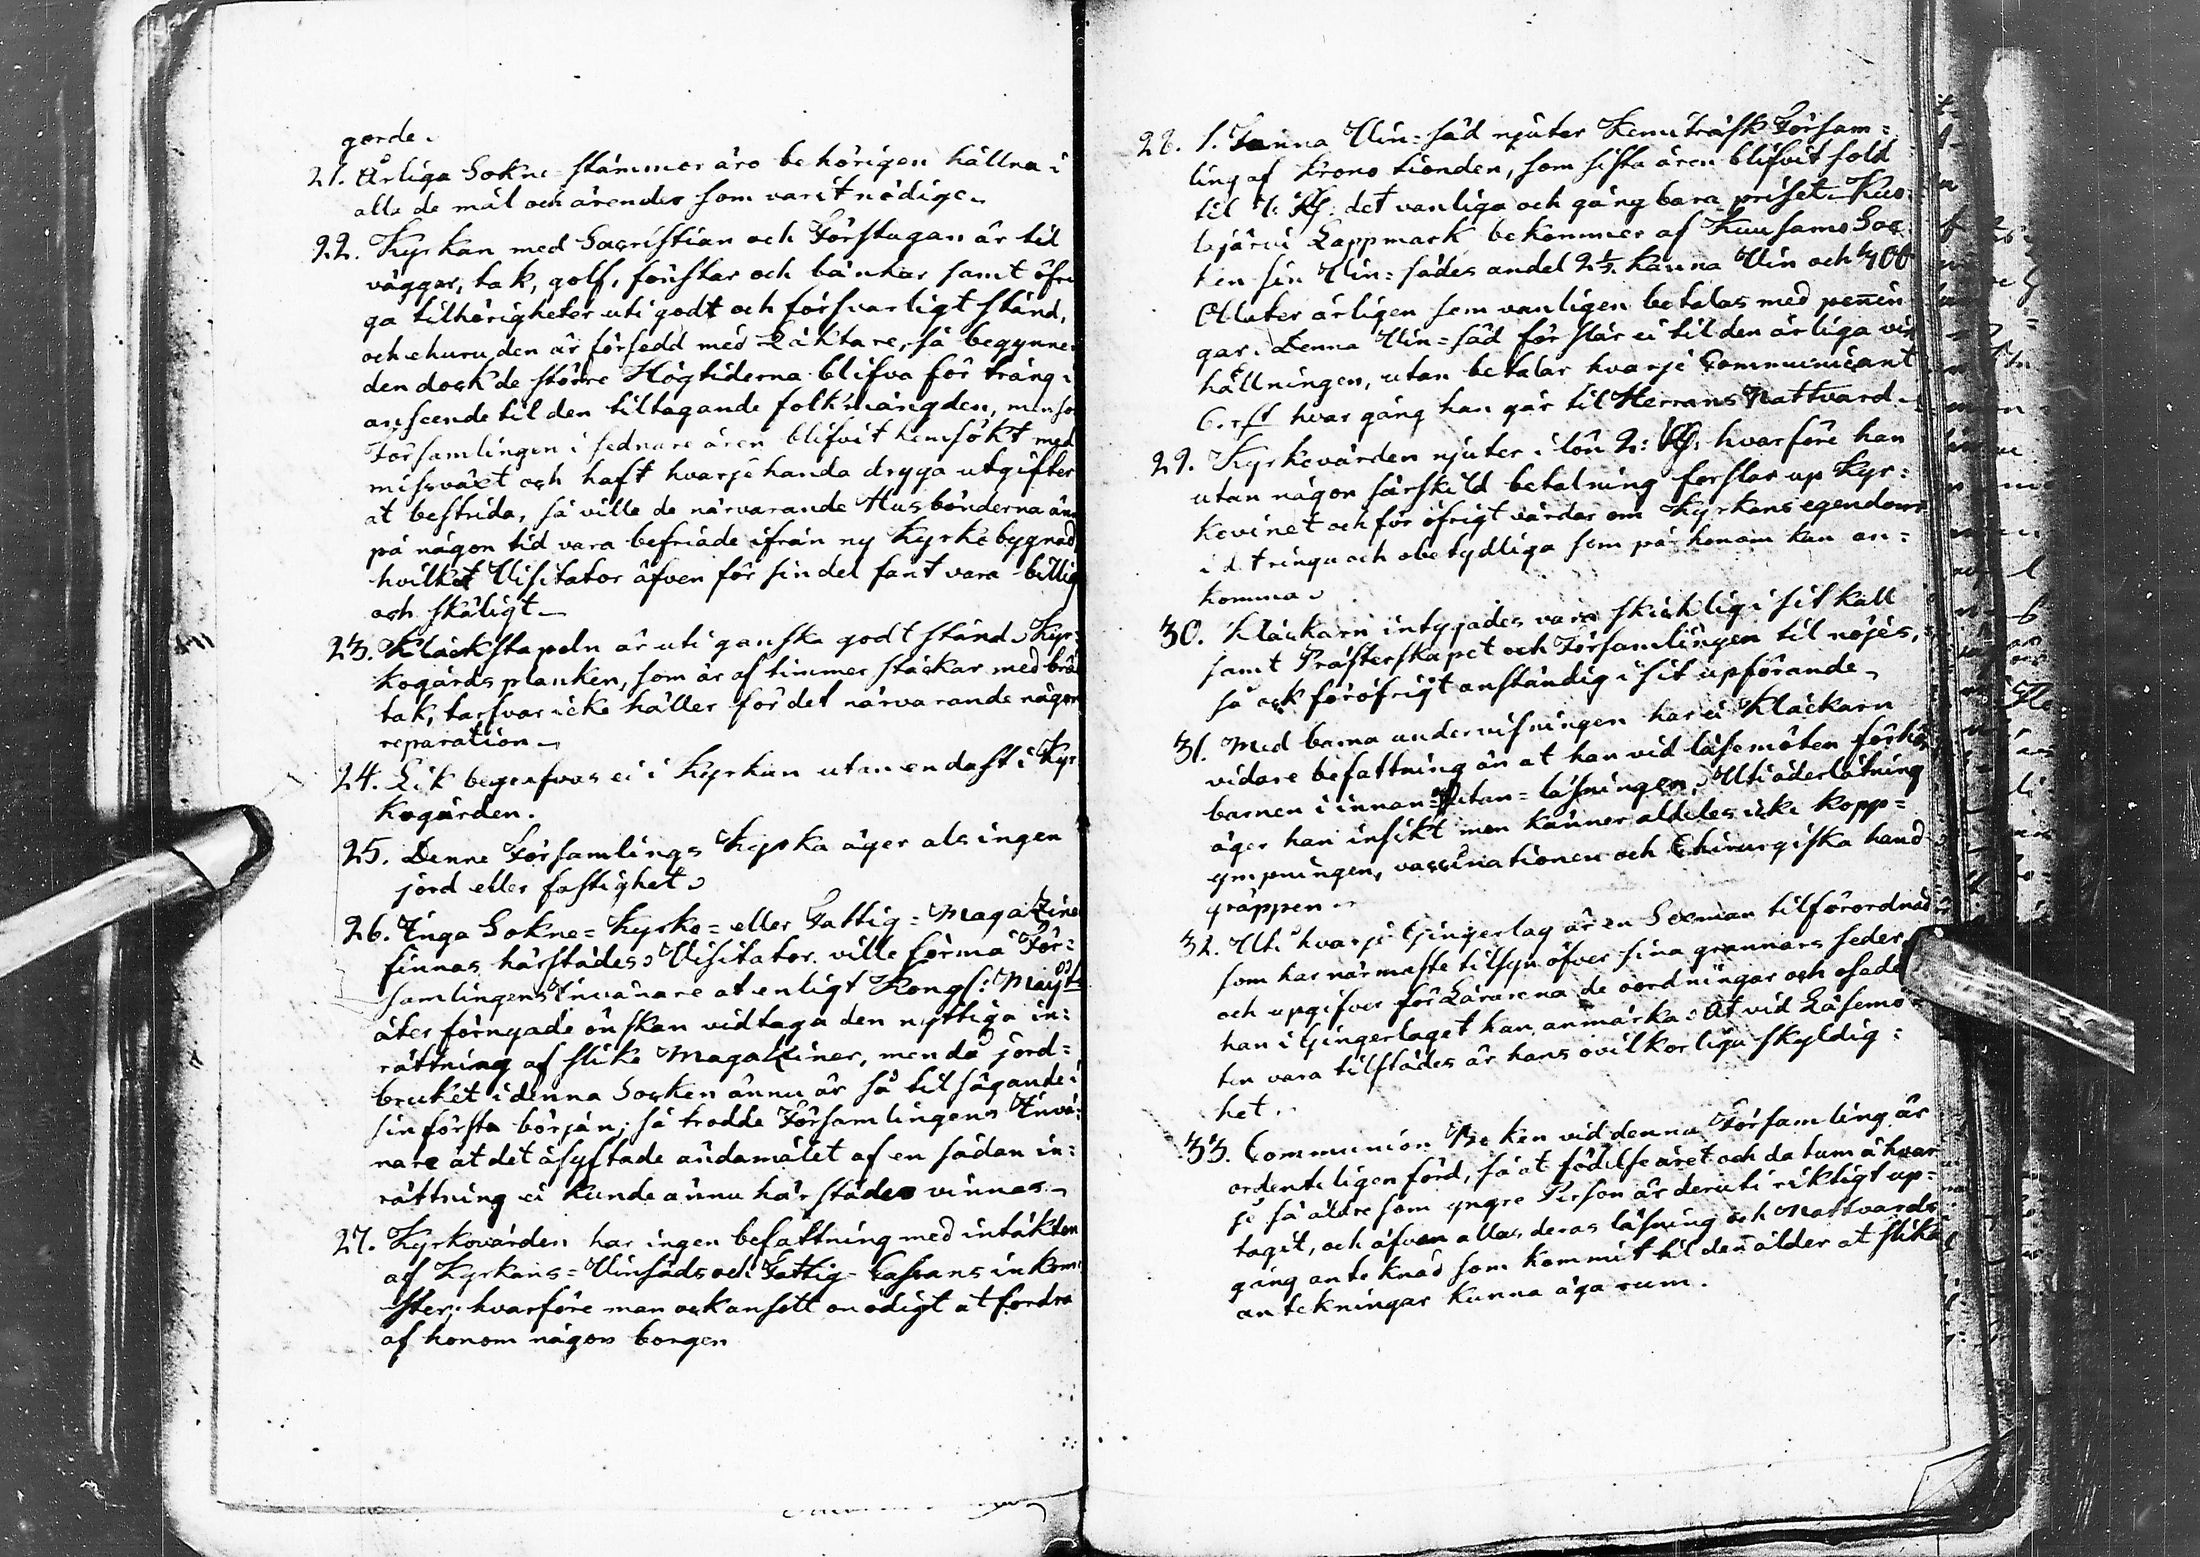 gorde.
21. Årliga Sokne-stämmor äro behörigen hållna i
alla de mål och ärender som varit nödige.
22. Kyrkan med Sacristian och Förstugan är til
väggar, tak, golf, fönster och bänkar samt öfri
ga tilhörigheter uti godt och försvarligt stånd,
och ehuru den är försedd med Läktare, så begynner
den dock de större Högtiderna blifva för trång i
anseende til den tiltagande folkmängden, men som
Församlingen i sednare åren blifvit hemsökt med
missväxt och haft hvarjehanda dryga utgifter
at bestrida, så ville de närvarande Husbönderna än
på någon tid vara befriade ifrån ny Kyrkobygnad
hvilket Visitator äfven för sin del fant vara billig
och skäligt.
23. Klåckstapeln är uti ganska godt stånd. Kyr=
kogårds planken, som är af timmer stäckar med bräd
tak, tarfvar icke häller för det närvarande någon
reparation.
24. Lik begrafvas ei i Kyrkan utan endast i Kyr
kogården.
25. Denne Församlings Kyrka äger als ingen
jord eller fastighet.
26. Inga Sokne= Kyrko= eller Fattig=Magaziner
finnas härstädes. Visitator ville förmå För=
samlingens Invånare at enligt Kongl: Maj:ts
åter förnyade önskan vidtaga den nyttiga in=
rättning af slike Magaziner, men då jord=
bruket i denna Socken ännu är så til sägande i
sin första början; så trodde Församlingens Invå=
nare at det åsyftade ändamålet af en sådan in=
rättning ei kunde ännu här städes vinnas.
27. Kyrkovärden har ingen befattning med intäkten
af Kyrkans= Vinsäds och Fattig-Cassans inkom=
ster; hvarföre man ock ansett onödigt at fordra
af honom någon borgen
28. 1. Tunna Vin=säd njuter Kemiträsk Försam=
ling af Krono tionden, som sista åren blifvit sold
til det vanliga och gångbara priset. Kuo=
lajärvi Lappmark bekommer af Kuusamo Soc
ken sin Vin=sädes andel 2 1/2 kanna Vin och 400
Oblater årligen som vanligen betalas med pen̄in
gar. Denna Vin=säd förslår ei til den årliga vin
hållningen, utan betalar hvarje Communicant
6. rst hvar gång han går til Herrans Nattvard.
29. Kyrkovärden njuter i lön 2: hvarföre han
utan någon särskild betalning forslar up Kyr=
kovinet och för öfrigt vårdar om Kyrkans egendom
i det ringa och obetydliga som på honom kan an=
komma.
30. Klåckarn intygades vara skicklig i sit kall
samt Prästerskapet och Församlingen til nöjes,
så ock föröfrigt anständig i sit upförande.
31. Med barna undervisningen har ei Klåckarn
vidare befattning än at han vid läsemöten förhör
barnen i innan= utan=läsningen. Uti åderlåtning
äger han insikt men känner aldeles icke kopp=
ympningen, vaccinationen och Chirurgiska hand
gräppen.
32. Uti hvarje Gingerlag är en Sexman tilförordnad
som har närmaste tilsyn öfver sina grannars seder
och upgifver för Lärarena de oordningar och osade
han i Gingerlaget kan anmärka. At vid Läsemö=
ten vara tilstädes är hans ovilkorliga skyldig=
het.
33. Communion Boken vid denna Församling är
ordenteligen förd, så at födelseåret och datum å hvar
je så äldre som yngre Person är deruti riktigt up=
tagit, och äfven allas deras läsning och Nattvards
gång anteknad som kommit til den ålder at slika
antekningar kunna äga rum.